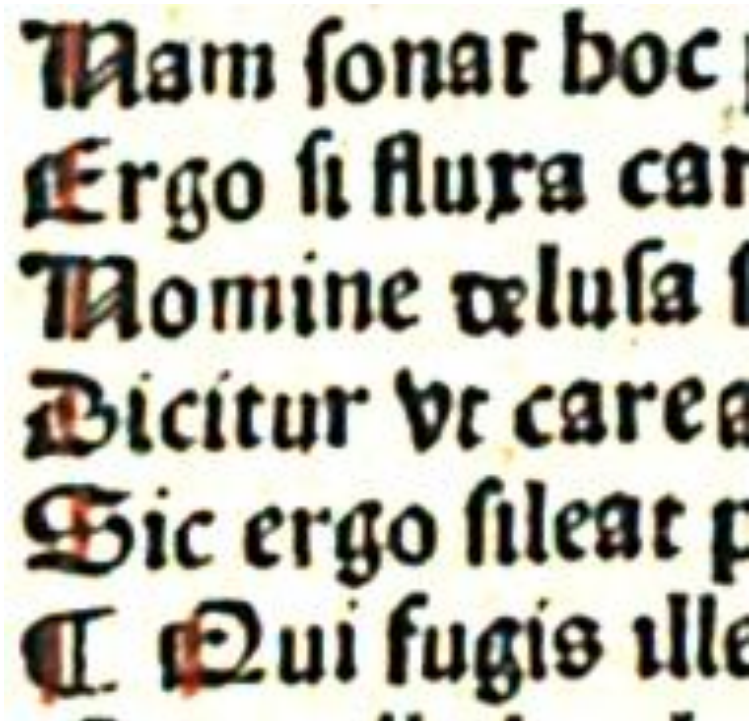 Nam ſonat hoc
Ergo ſi fluxa car
Nomine deluſa ſ
Dicitur vt carea
Sic ergo ſileat p
¶ Qui fugis ille